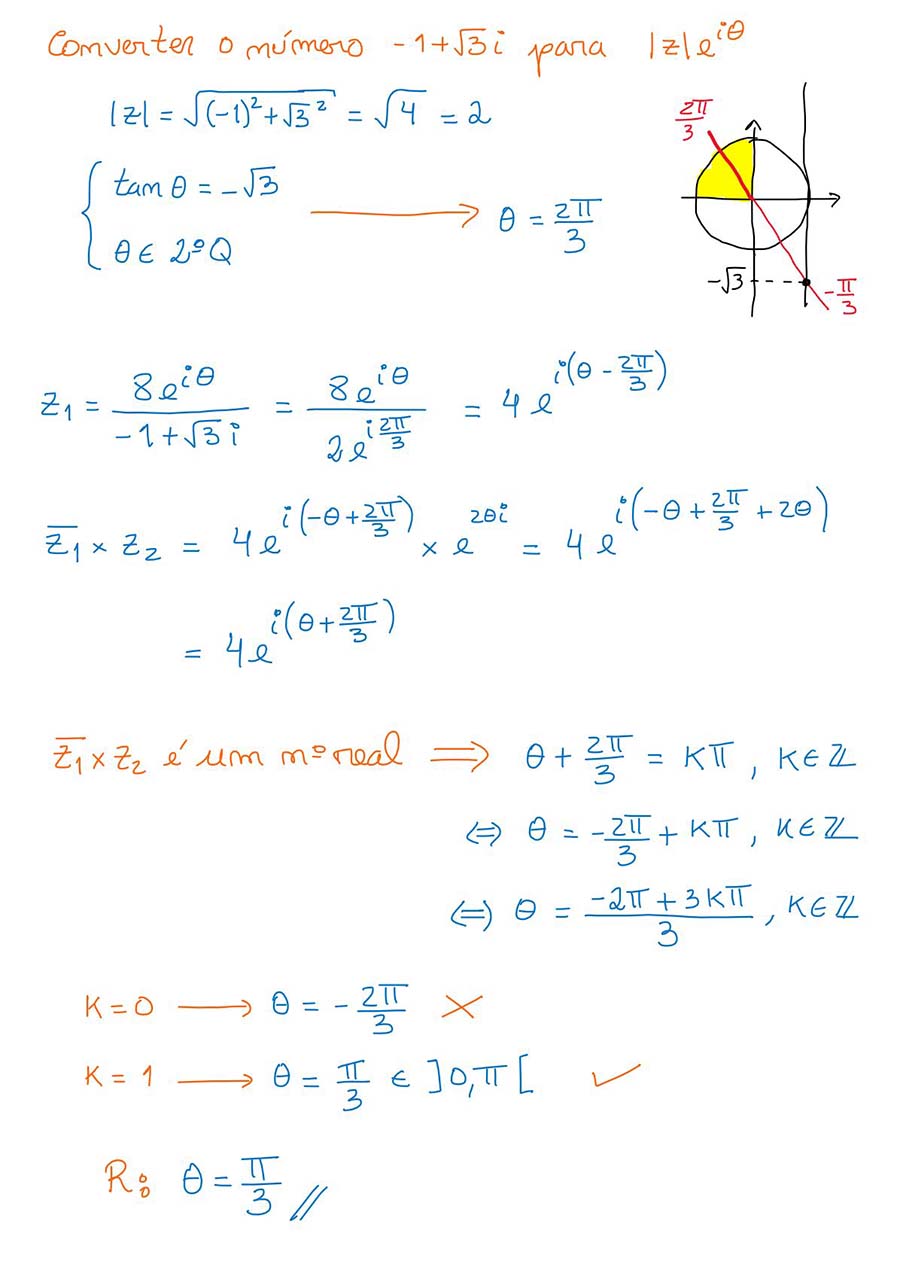 Converter o número -1+√3 i para |z|e^{iθ}
|z| = √((-1)²+√3²) = √4 = 2
tan θ = -√3
θ ∈ 2ºQ
⟶ θ = 2π/3
2π/3
-√3
-π/3
z₁ = 8e^{iθ}/(-1+√3 i) = 8e^{iθ}/(2e^{i 2π/3}) = 4e^{i(θ - 2π/3)}
z̅₁ × z₂ = 4e^{i(-θ + 2π/3)} × e^{2θi} = 4e^{i(-θ + 2π/3 + 2θ)}
= 4e^{i(θ + 2π/3)}
z̅₁ × z₂ é um nº real ⟹ θ + 2π/3 = Kπ , K∈ℤ
⇔ θ = -2π/3 + Kπ , K∈ℤ
⇔ θ = (-2π + 3Kπ)/3 , K∈ℤ
K = 0 ⟶ θ = -2π/3 ✗
K = 1 ⟶ θ = π/3 ∈ ]0,π[ ✓
R: θ = π/3 //